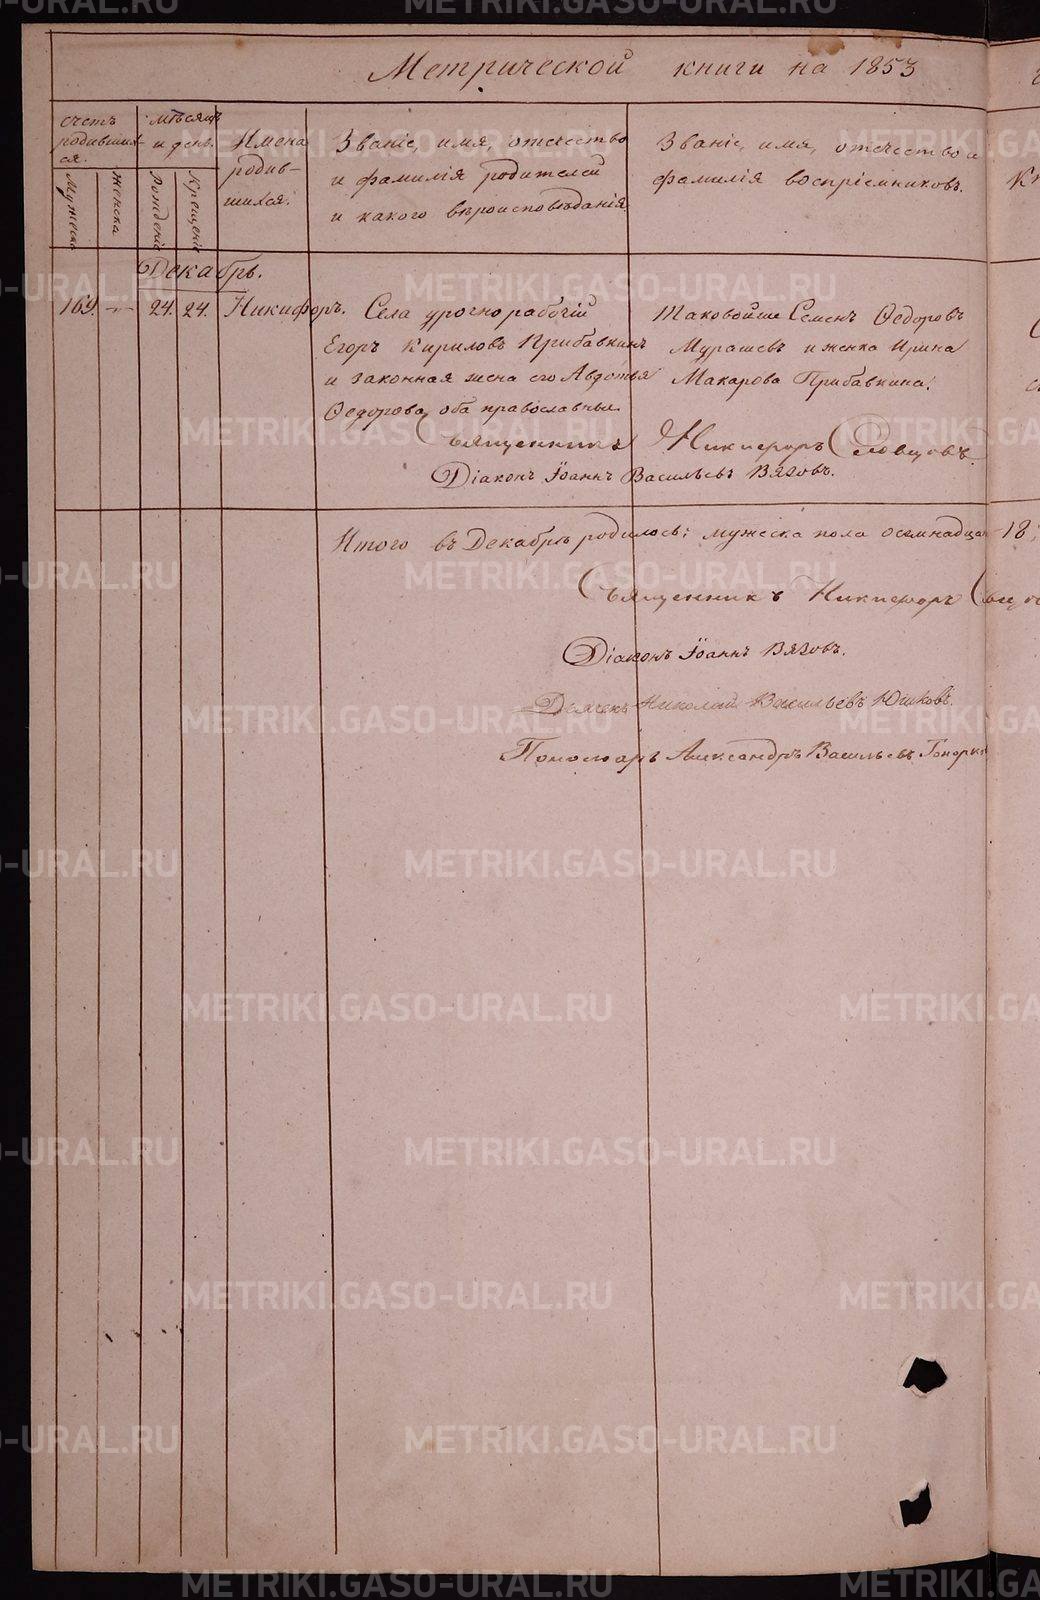 Метрической книги на 1853
счетъ родившихся.
мѣсяцъ и день.
Имена родившихся.
Званіе, имя, отчество
и фамилія родителей
и какого вѣроисповѣданія.
Званіе, имя, отчество и
фамилія воспріемниковъ.
Мужеска
женска
Рожденіе
Крещеніе
Декабрь.
169. — 24. 24. Никифоръ.
Села урочнорабочій
Егоръ Кириловъ Прибавкинъ
и законная жена его Авдотья
Ѳедорова, оба православные.
таковойже Семенъ Ѳедоровъ
Мурашевъ и женка Ирина
Макарова Прибавкина.
Священникъ Никифоръ Словцовъ.
Діаконъ Іоаннъ Васильевъ Вяховъ.
Итого въ Декабрѣ родилось: мужеска пола осемнадцат 18;
Священникъ Никифоръ
Діаконъ Іоаннъ Вяховъ.
Дьячекъ Николай Васильевъ Юшковъ.
Пономарь Александръ Васильевъ
METRIKI.GASO-URAL.RU